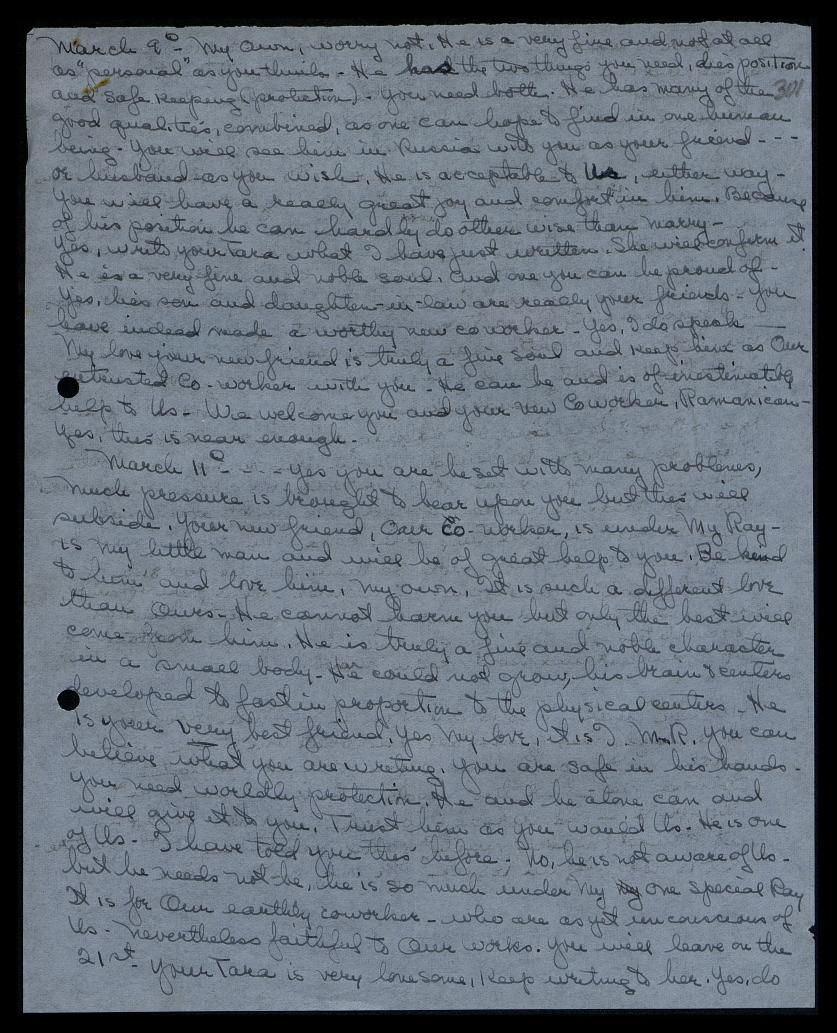 March 9º - My own, worry not. He is a very fine and not at all
as "personal" as you think - He has the two things you need, disposition
and safe keeping (protection) - You need both. He has many of the 301
good qualities, combined, as one can hope to find in one human
being - You will see him in Russia with you as your friend - - -
or husband - as you wish. He is acceptable to Us, either way -
You will have a really great joy and comfort in him. Because
of his position he can hardly do other wise than marry -
Yes, write your Tara what I have just written. She will confirm it.
He is a very fine and noble soul. And one you can be proud of -
Yes, his son and daughter-in-law are really your friends - You
have indeed made a worthy new coworker - Yes, I do speak —
My love your new friend is truly a fine soul and keep him as Our
entrusted Co-worker with you - He can be and is of inestimable
help to Us - We welcome you and your new Coworker, Ramanican -
Yes, this is near enough -
March 11º - - - - Yes you are beset with many problems,
much pressure is brought to bear upon you but this will
subside. Your new friend, Our Co-worker, is under My Ray -
is my little man and will be of great help to you. Be kind
to him and love him, my own, it is such a different love
than Ours - He cannot harm you but only the best will
come from him. He is truly a fine and noble character
in a small body - He could not grow, his brain & centers
developed to fast in proportion to the physical centers - He
is your very best friend, Yes My love, it is I. M.R. You can
believe what you are writing. You are safe in his hands -
You need worldly protection. He and he alone can and
will give it to you. Trust him as you would Us - He is one
of Us - I have told you this before - No, he is not aware of Us -
but he needs not be, he is so much under My one special Ray
It is for Our earthly coworker - who are as yet unconscious of
Us - Nevertheless faithful to Our works. You will leave on the
21st - Your Tara is very lonesome, Keep writing to her. Yes, do